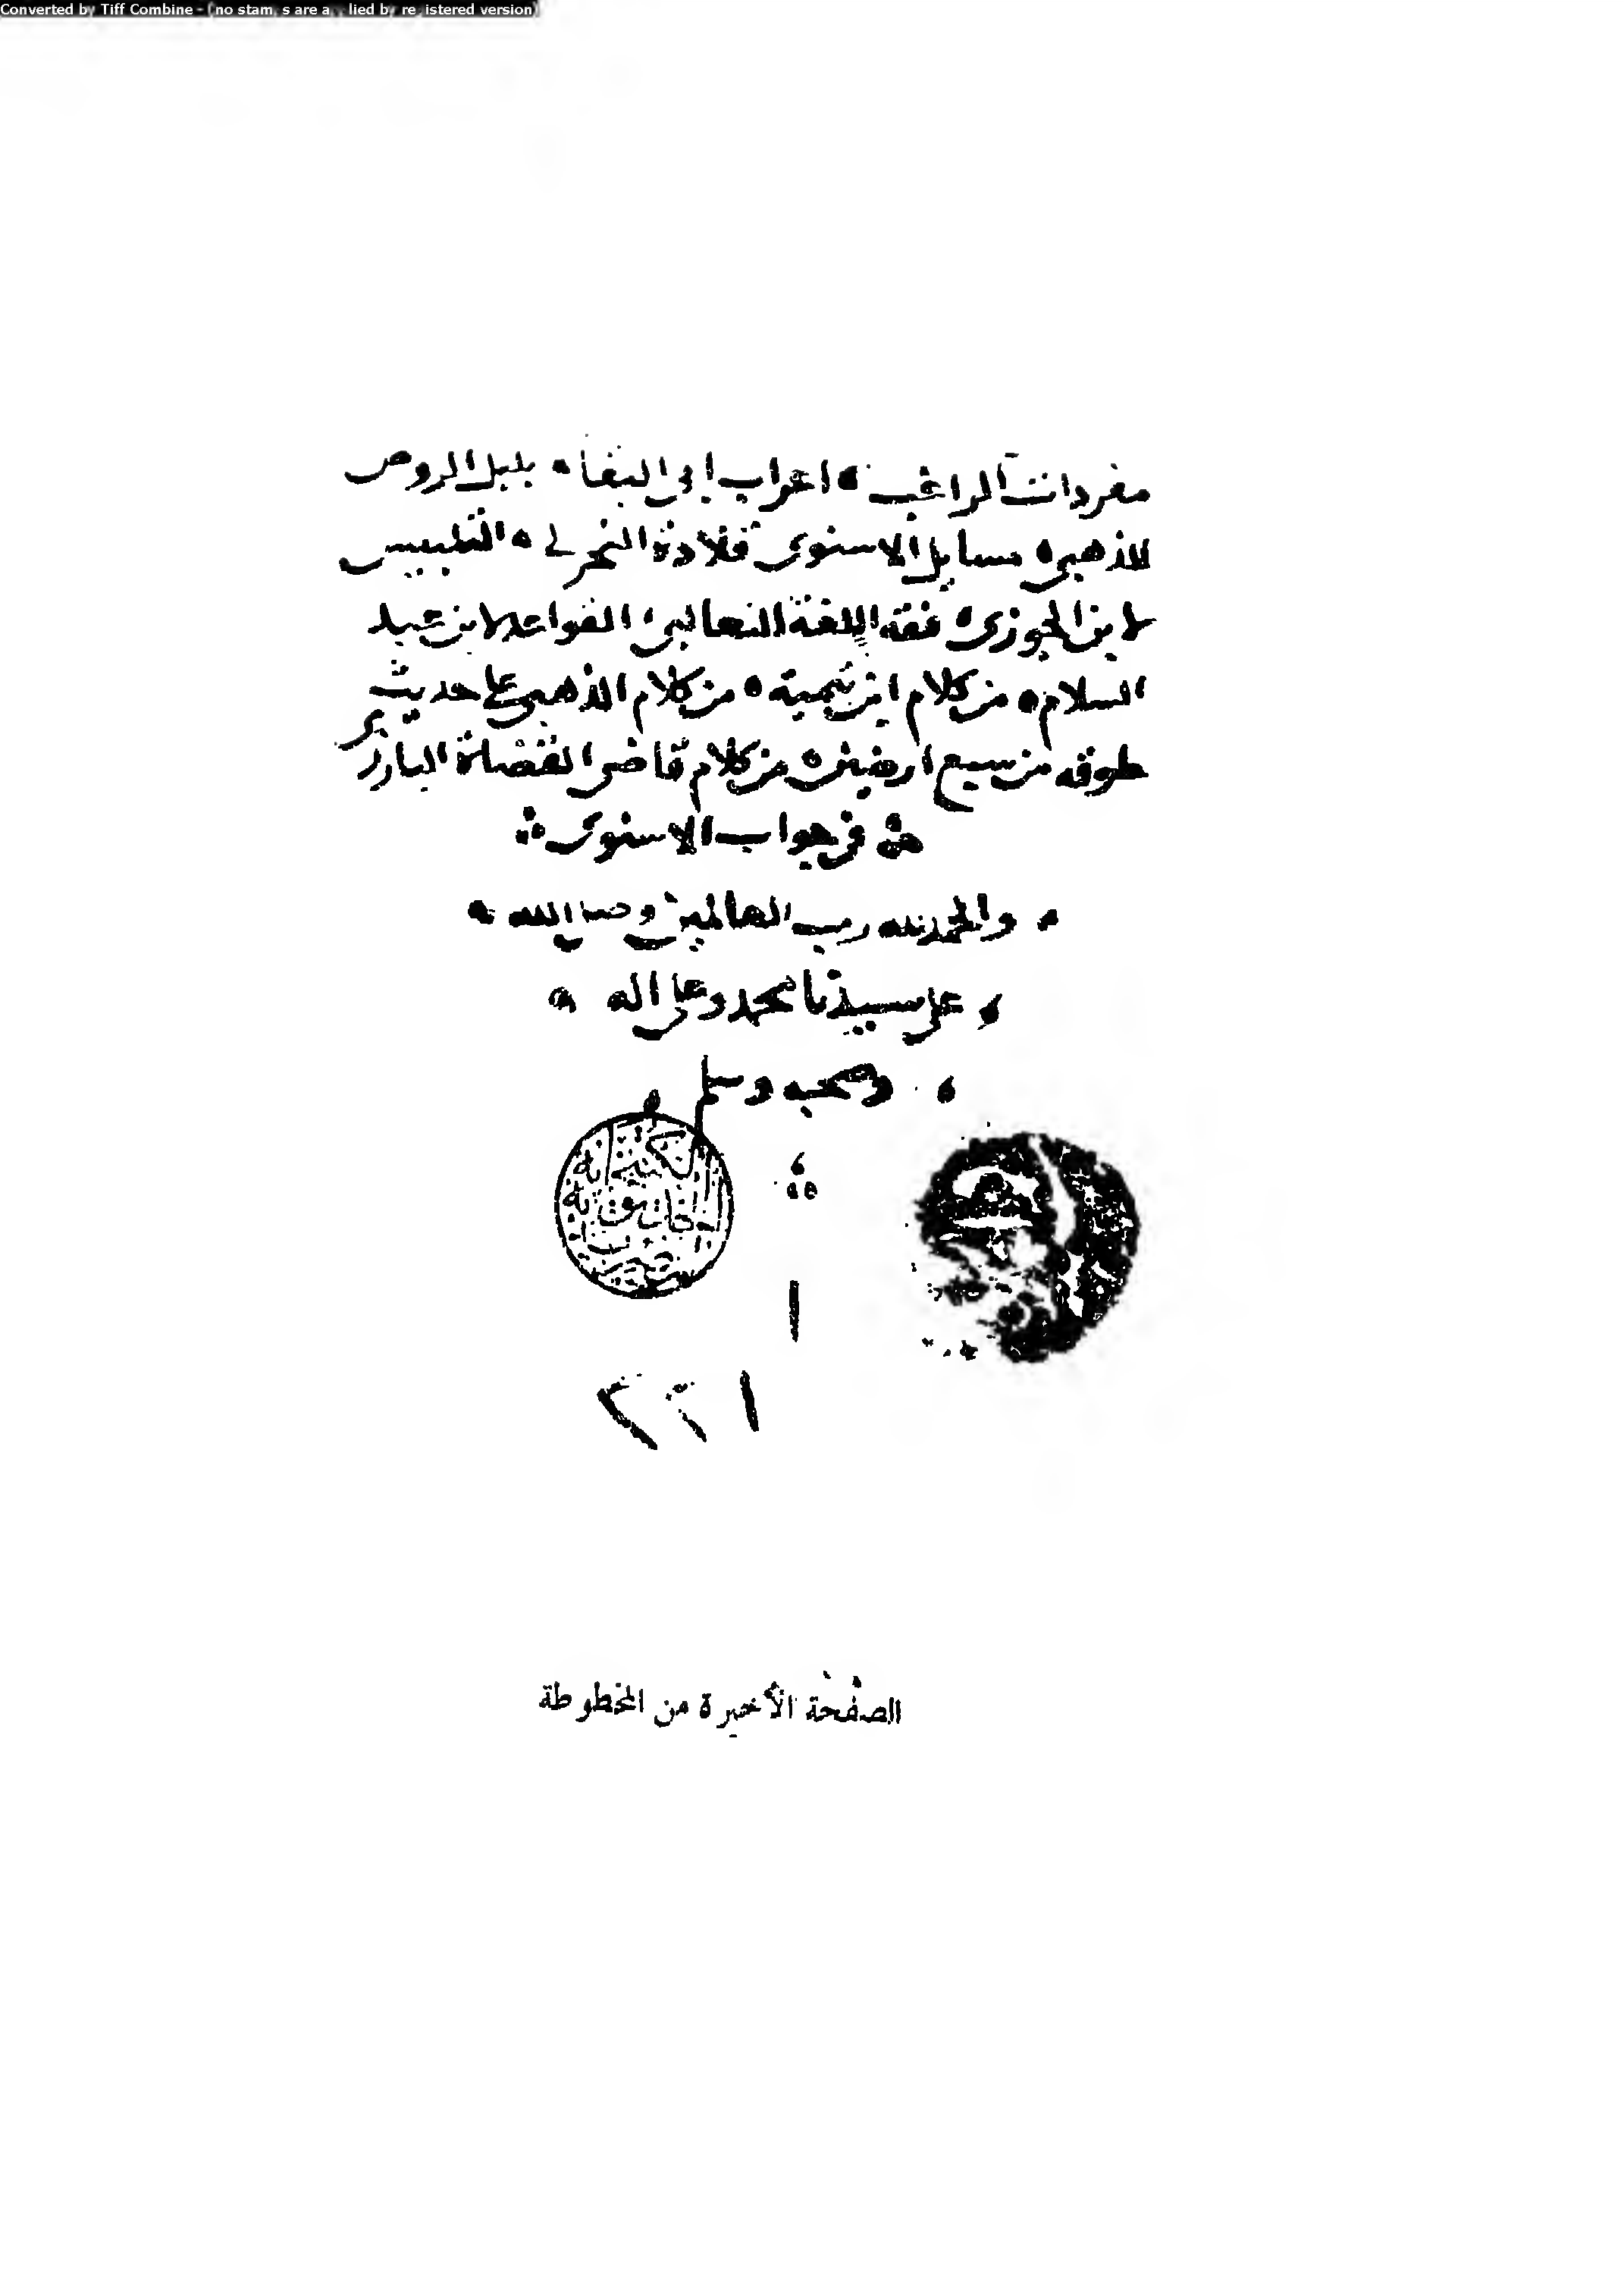 Converted by Tiff Combine - (no stamps are applied by registered version)
مفردات الراغب ه اعراب ابى البقا ه بلبل الروض
للذهبى ه مسايل الاسنوى قلادة النحر لى ه التلبيس
لابن الجوزى ه فقه اللغة الثعالبى ، القواعد لابن عبد
السلام ه من كلام ابن تيمية ه من كلام الذهبى على حديث
طوقه من سبع ارضين ه من كلام قاضى القضاة البارزى
ه فى جواب الاسنوى
والحمد لله رب العالمين وصلى الله
على سيدنا محمد وعلى اله
وصحبه وسلم
الصفحة الأخيرة من المخطوطة